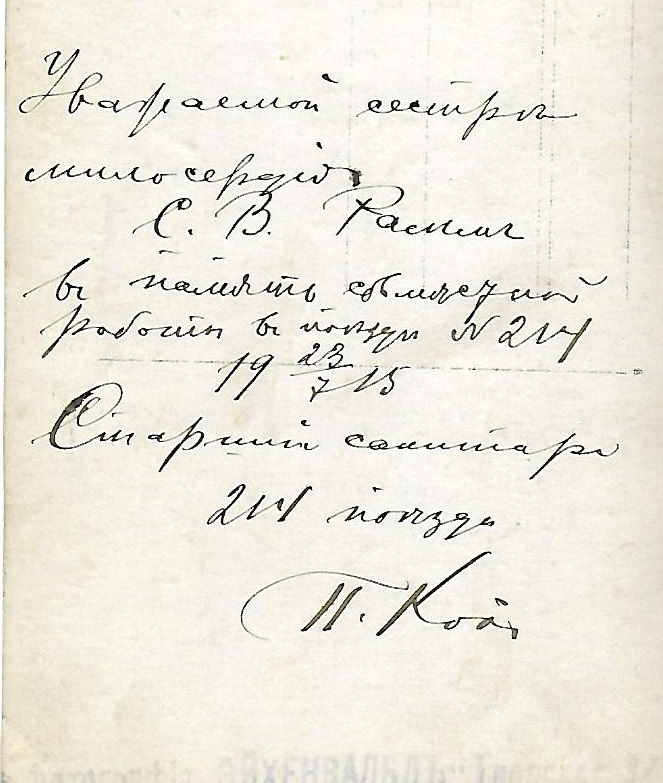 Уважаемой сестрѣ
милосердія
С. В.
въ память совмѣстной
работы въ поѣздѣ N 214
19 23/7 15
Старшій санитаръ
214 поѣзда
П.
ЭЙХЕНВАЛЬДЪ"